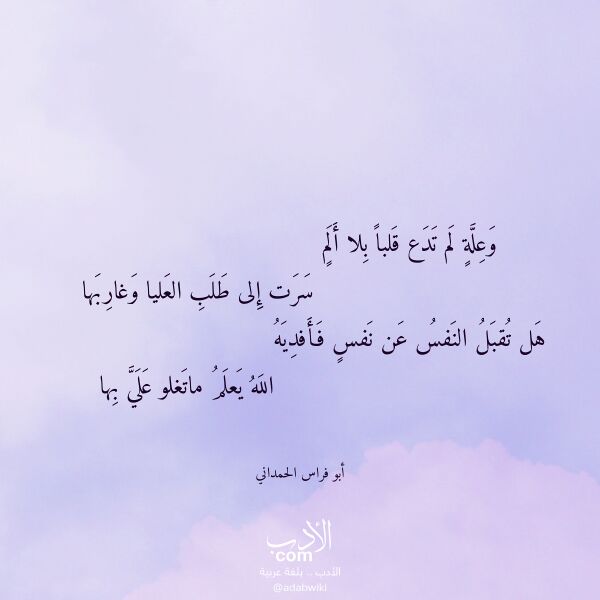 وَعِلَّةٍ لَم تَدَع قَلباً بِلا أَلَمٍ
سَرَت إِلى طَلَبِ العَليا وَغارِبَها
هَل تُقبَلُ النَفسُ عَن نَفسٍ فَأَفدِيَهُ
اللَهُ يَعلَمُ ماتَغلو عَلَيَّ بِها
أبو فراس الحمداني
الأدب
com
الأدب .. بلغة عربية
@adabwiki